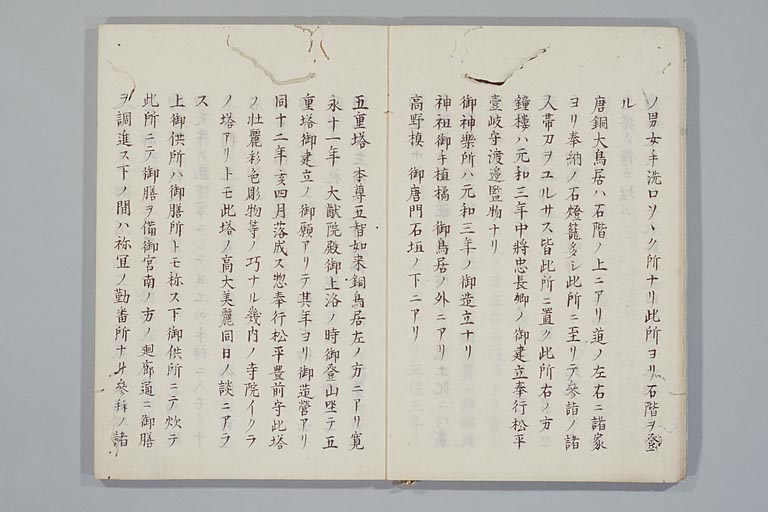 ノ男女手洗口ソヽク所ナリ此所ヨリ石階ヲ登
ル
唐銅大鳥居ハ石階ノ上ニアリ道ノ左右ニ諸家
ヨリ奉納ノ石燈籠多シ此所ニ至リテ參詣ノ諸
人帯刀ヲユルサス皆此所ニ置ク此所右ノ方
鐘樓ハ元和三年中將忠長卿ノ御建立奉行松平
壹岐守渡邉監物ナリ
御神樂所ハ元和三年ノ御造立ナリ
神祖御手植橘 御鳥居ノ外ニアリ
高野槙 御唐門石垣ノ下ニアリ
五重塔 本尊五智如来銅鳥居左ノ方ニアリ寛
永十一年 大猷院殿御上洛ノ時御登山坐テ五
重塔御建立ノ御願アリテ其年ヨリ御造營アリ
同十二年亥四月落成ス惣奉行松平豊前守此塔
ノ壮麗彩色彫物等ノ巧ナル幾内ノ寺院イクラ
ノ塔アリトモ此塔ノ高大美麗同日ノ談ニアラ
ス
上御供所ハ御膳所トモ称ス下御供所ニテ炊テ
此所ニテ御膳ヲ備御宮南ノ方ノ廻廊通ニ御膳
ヲ調進ス下ノ間ハ祢宜ノ勤番所ナリ參拜ノ諸